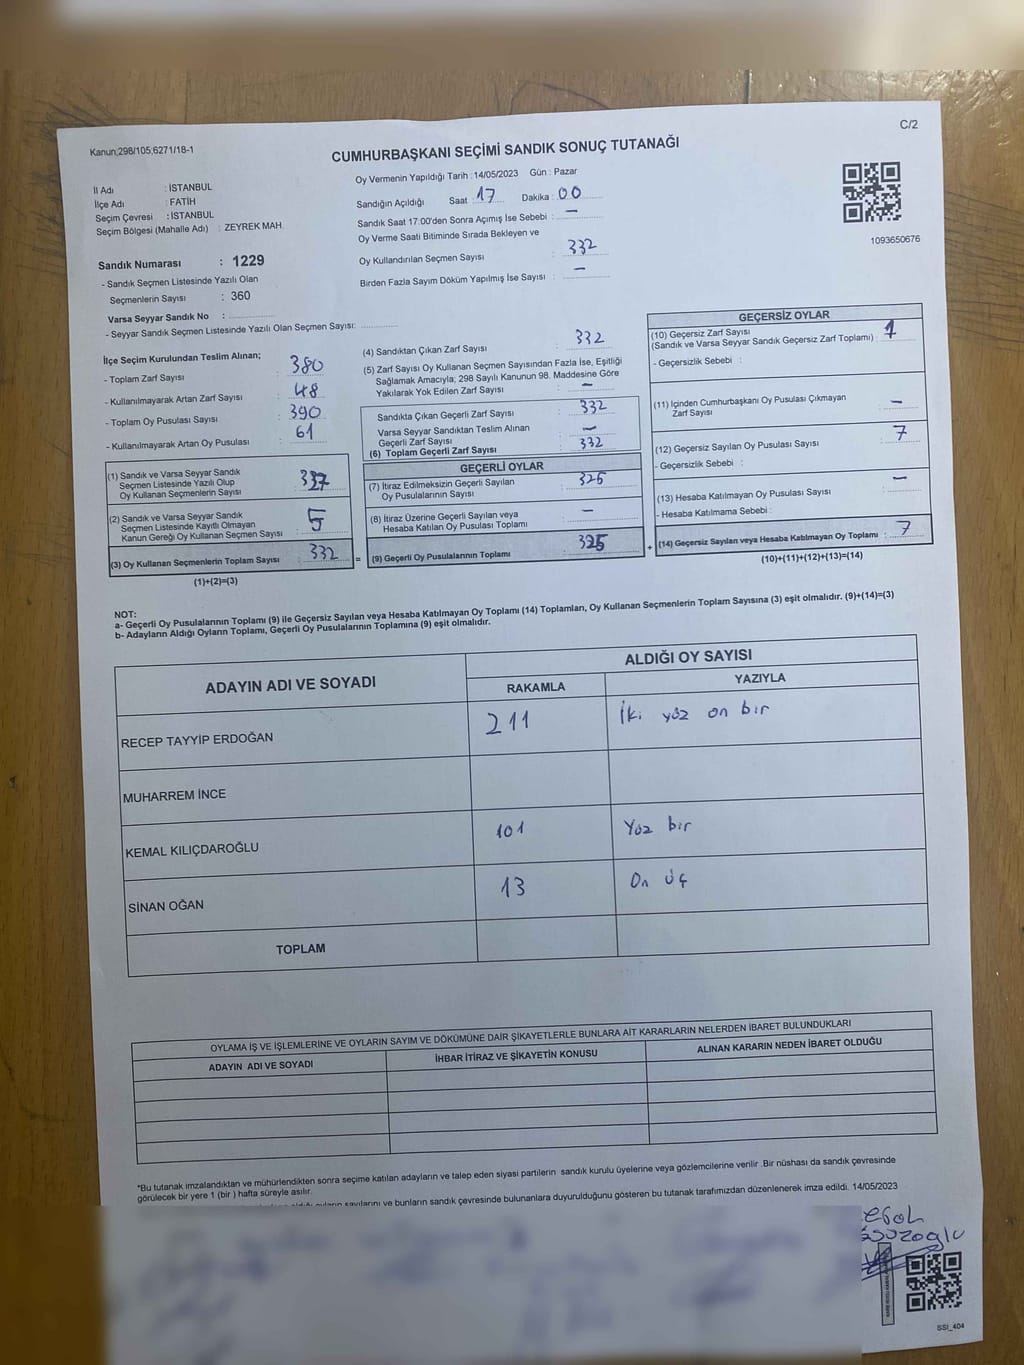 C/2
Kanun;298/105;6271/18-1
CUMHURBAŞKANI SEÇİMİ SANDIK SONUÇ TUTANAĞI
İl Adı : İSTANBUL
İlçe Adı : FATİH
Seçim Çevresi : İSTANBUL
Seçim Bölgesi (Mahalle Adı) : ZEYREK MAH.
Sandık Numarası : 1229
- Sandık Seçmen Listesinde Yazılı Olan
Seçmenlerin Sayısı : 360
Varsa Seyyar Sandık No :
- Seyyar Sandık Seçmen Listesinde Yazılı Olan Seçmen Sayısı:
Oy Vermenin Yapıldığı Tarih :14/05/2023 Gün : Pazar
Sandığın Açıldığı Saat : 17 Dakika : 00
Sandık Saat 17:00'den Sonra Açımış İse Sebebi : —
Oy Verme Saati Bitiminde Sırada Bekleyen ve
Oy Kullandırılan Seçmen Sayısı : 332
Birden Fazla Sayım Döküm Yapılmış İse Sayısı : —
1093650676
İlçe Seçim Kurulundan Teslim Alınan;
- Toplam Zarf Sayısı : 380
- Kullanılmayarak Artan Zarf Sayısı : 48
- Toplam Oy Pusulası Sayısı : 390
- Kullanılmayarak Artan Oy Pusulası : 61
(1) Sandık ve Varsa Seyyar Sandık
Seçmen Listesinde Yazılı Olup
Oy Kullanan Seçmenlerin Sayısı :
(2) Sandık ve Varsa Seyyar Sandık
Seçmen Listesinde Kayıtlı Olmayan
Kanun Gereği Oy Kullanan Seçmen Sayısı : 5
(3) Oy Kullanan Seçmenlerin Toplam Sayısı : 332
(1)+(2)=(3)
(4) Sandıktan Çıkan Zarf Sayısı : 332
(5) Zarf Sayısı Oy Kullanan Seçmen Sayısından Fazla İse, Eşitliği
Sağlamak Amacıyla; 298 Sayılı Kanunun 98. Maddesine Göre
Yakılarak Yok Edilen Zarf Sayısı : —
Sandıkta Çıkan Geçerli Zarf Sayısı : 332
Varsa Seyyar Sandıktan Teslim Alınan
Geçerli Zarf Sayısı : —
(6) Toplam Geçerli Zarf Sayısı : 332
GEÇERLİ OYLAR
(7) İtiraz Edilmeksizin Geçerli Sayılan
Oy Pusulalarının Sayısı : 325
(8) İtiraz Üzerine Geçerli Sayılan veya
Hesaba Katılan Oy Pusulası Toplamı : —
= (9) Geçerli Oy Pusulalarının Toplamı : 325
GEÇERSİZ OYLAR
(10) Geçersiz Zarf Sayısı
(Sandık ve Varsa Seyyar Sandık Geçersiz Zarf Toplamı) :
- Geçersizlik Sebebi :
(11) İçinden Cumhurbaşkanı Oy Pusulası Çıkmayan
Zarf Sayısı : —
(12) Geçersiz Sayılan Oy Pusulası Sayısı : 7
- Geçersizlik Sebebi :
(13) Hesaba Katılmayan Oy Pusulası Sayısı : —
- Hesaba Katılmama Sebebi :
+ (14) Geçersiz Sayılan veya Hesaba Katılmayan Oy Toplamı : 7
(10)+(11)+(12)+(13)=(14)
NOT:
a- Geçerli Oy Pusulalarının Toplamı (9) ile Geçersiz Sayılan veya Hesaba Katılmayan Oy Toplamı (14) Toplamları, Oy Kullanan Seçmenlerin Toplam Sayısına (3) eşit olmalıdır. (9)+(14)=(3)
b- Adayların Aldığı Oyların Toplamı, Geçerli Oy Pusulalarının Toplamına (9) eşit olmalıdır.
ADAYIN ADI VE SOYADI
ALDIĞI OY SAYISI
RAKAMLA YAZIYLA
RECEP TAYYİP ERDOĞAN 211 İki yüz on bir
MUHARREM İNCE
KEMAL KILIÇDAROĞLU 101 Yüz bir
SİNAN OĞAN 13 On üç
TOPLAM
OYLAMA İŞ VE İŞLEMLERİNE VE OYLARIN SAYIM VE DÖKÜMÜNE DAİR ŞİKAYETLERLE BUNLARA AİT KARARLARIN NELERDEN İBARET BULUNDUKLARI
ADAYIN ADI VE SOYADI İHBAR İTİRAZ VE ŞİKAYETİN KONUSU ALINAN KARARIN NEDEN İBARET OLDUĞU
*Bu tutanak imzalandıktan ve mühürlendikten sonra seçime katılan adayların ve talep eden siyasi partilerin sandık kurulu üyelerine veya gözlemcilerine verilir .Bir nüshası da sandık çevresinde
görülecek bir yere 1 (bir ) hafta süreyle asılır.
sayılarını ve bunların sandık çevresinde bulunanlara duyurulduğunu gösteren bu tutanak tarafımızdan düzenlenerek imza edildi. 14/05/2023
SSI_404